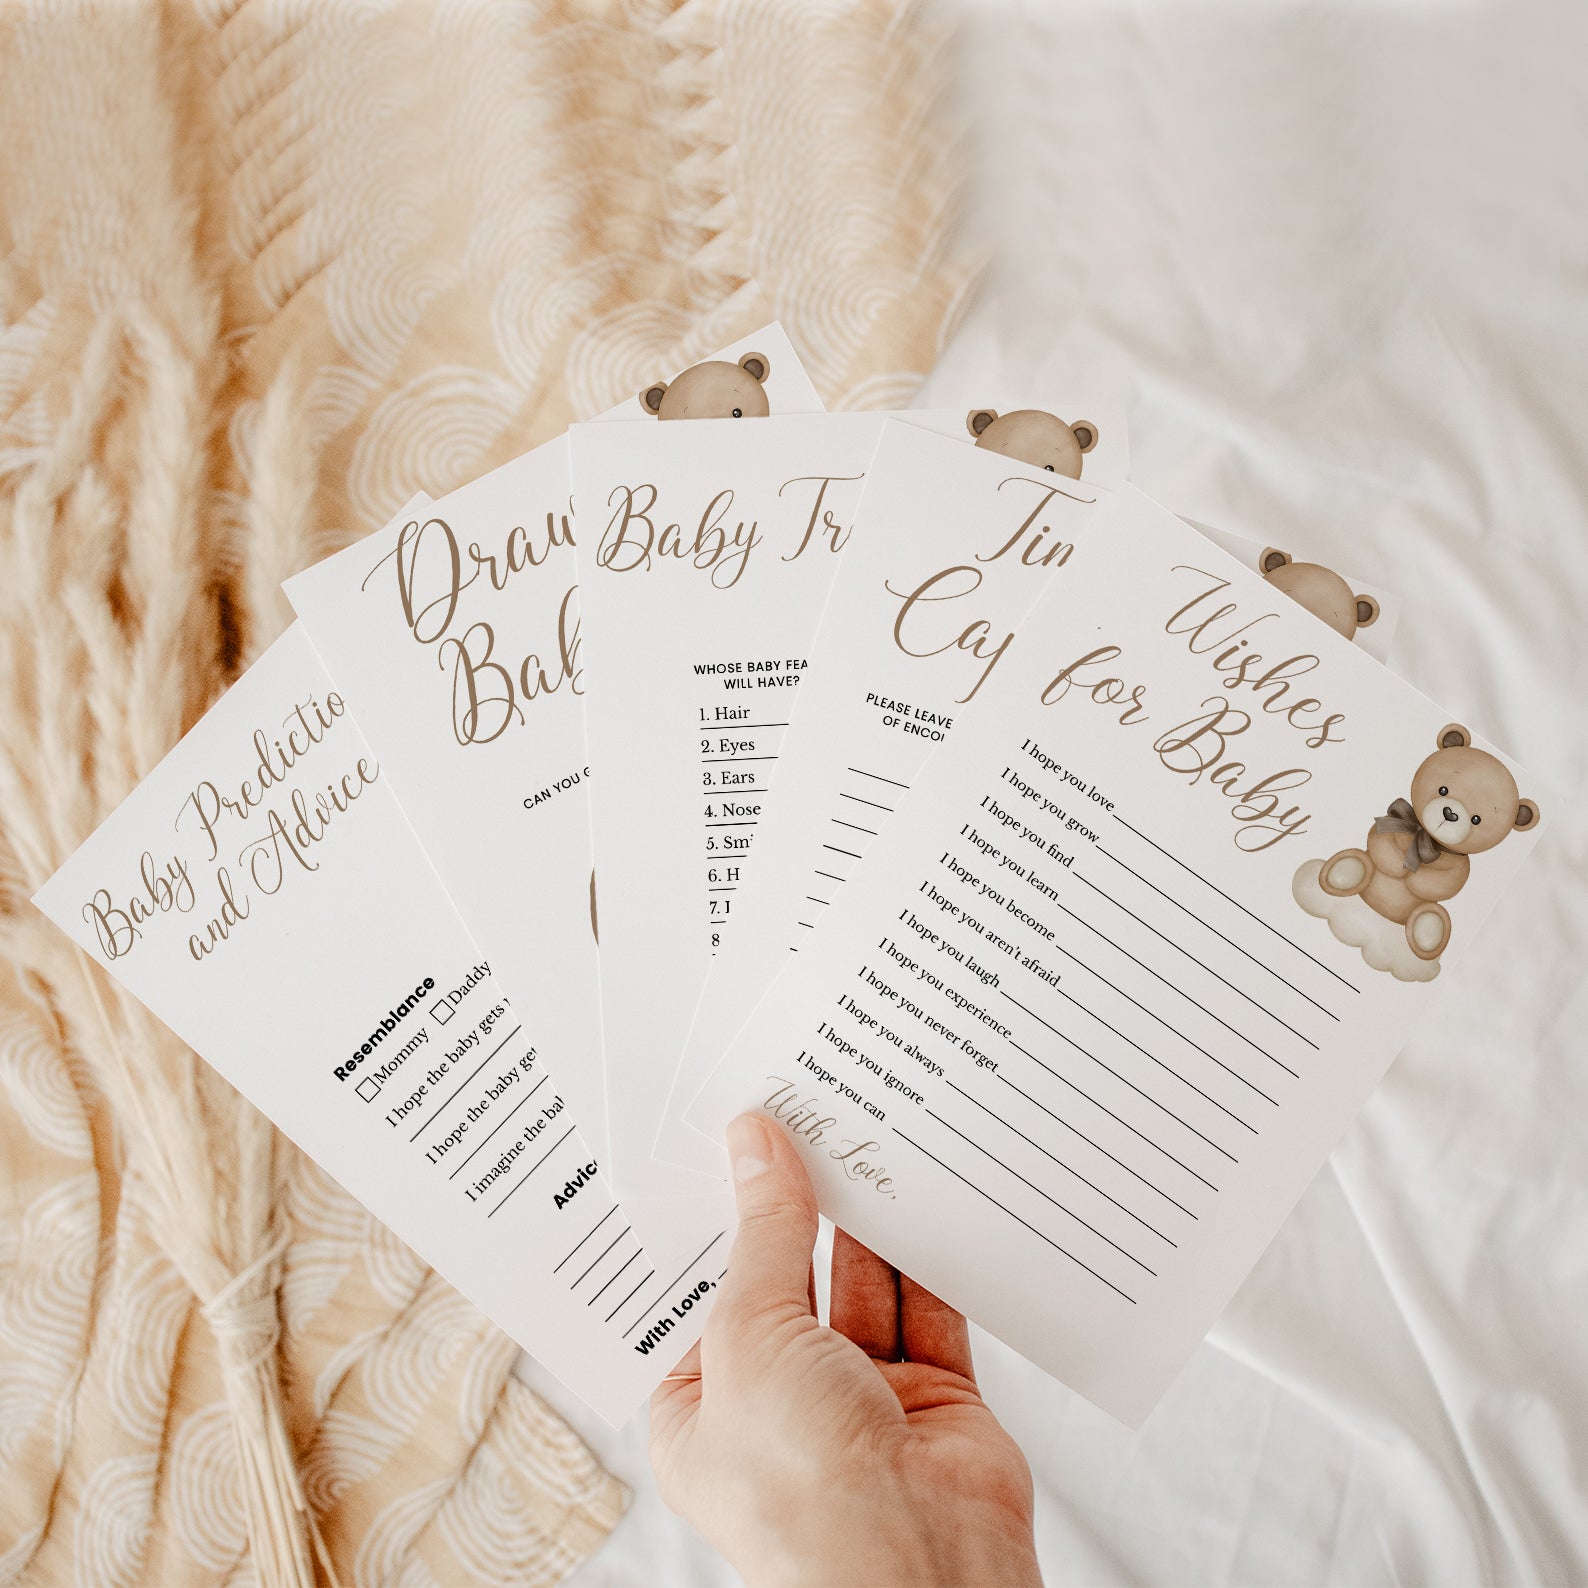 Baby Predictio
and Advice
Resemblance
Mommy Daddy
I hope the baby gets
I hope the baby get
I imagine the bab
Advic
With Love,
Draw
Bab
CAN YOU G
Baby Tr
WHOSE BABY FEA
WILL HAVE?
1. Hair
2. Eyes
3. Ears
4. Nose
5. Smi
6. H
7.
8
Tim
Cap
PLEASE LEAVE
OF ENCOU
Wishes
for Baby
I hope you love
I hope you grow
I hope you find
I hope you learn
I hope you become
I hope you aren't afraid
I hope you laugh
I hope you experience
I hope you never forget
I hope you always
I hope you ignore
I hope you can
With Love,